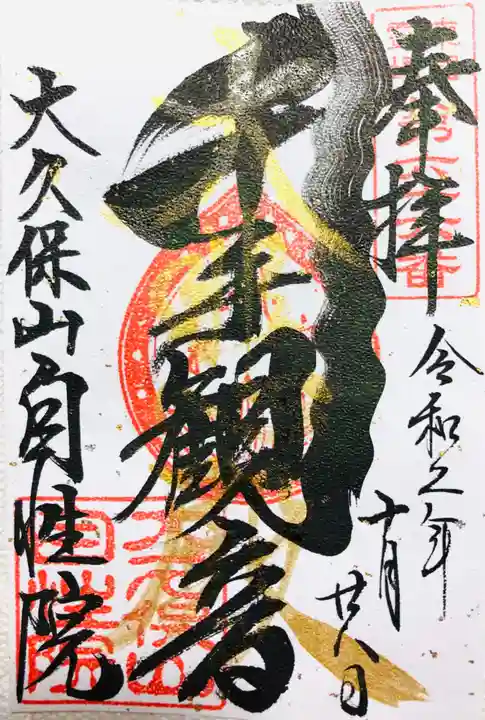 奉拝
令和二年
十月
廿八日
千手観音
大久保山自性院